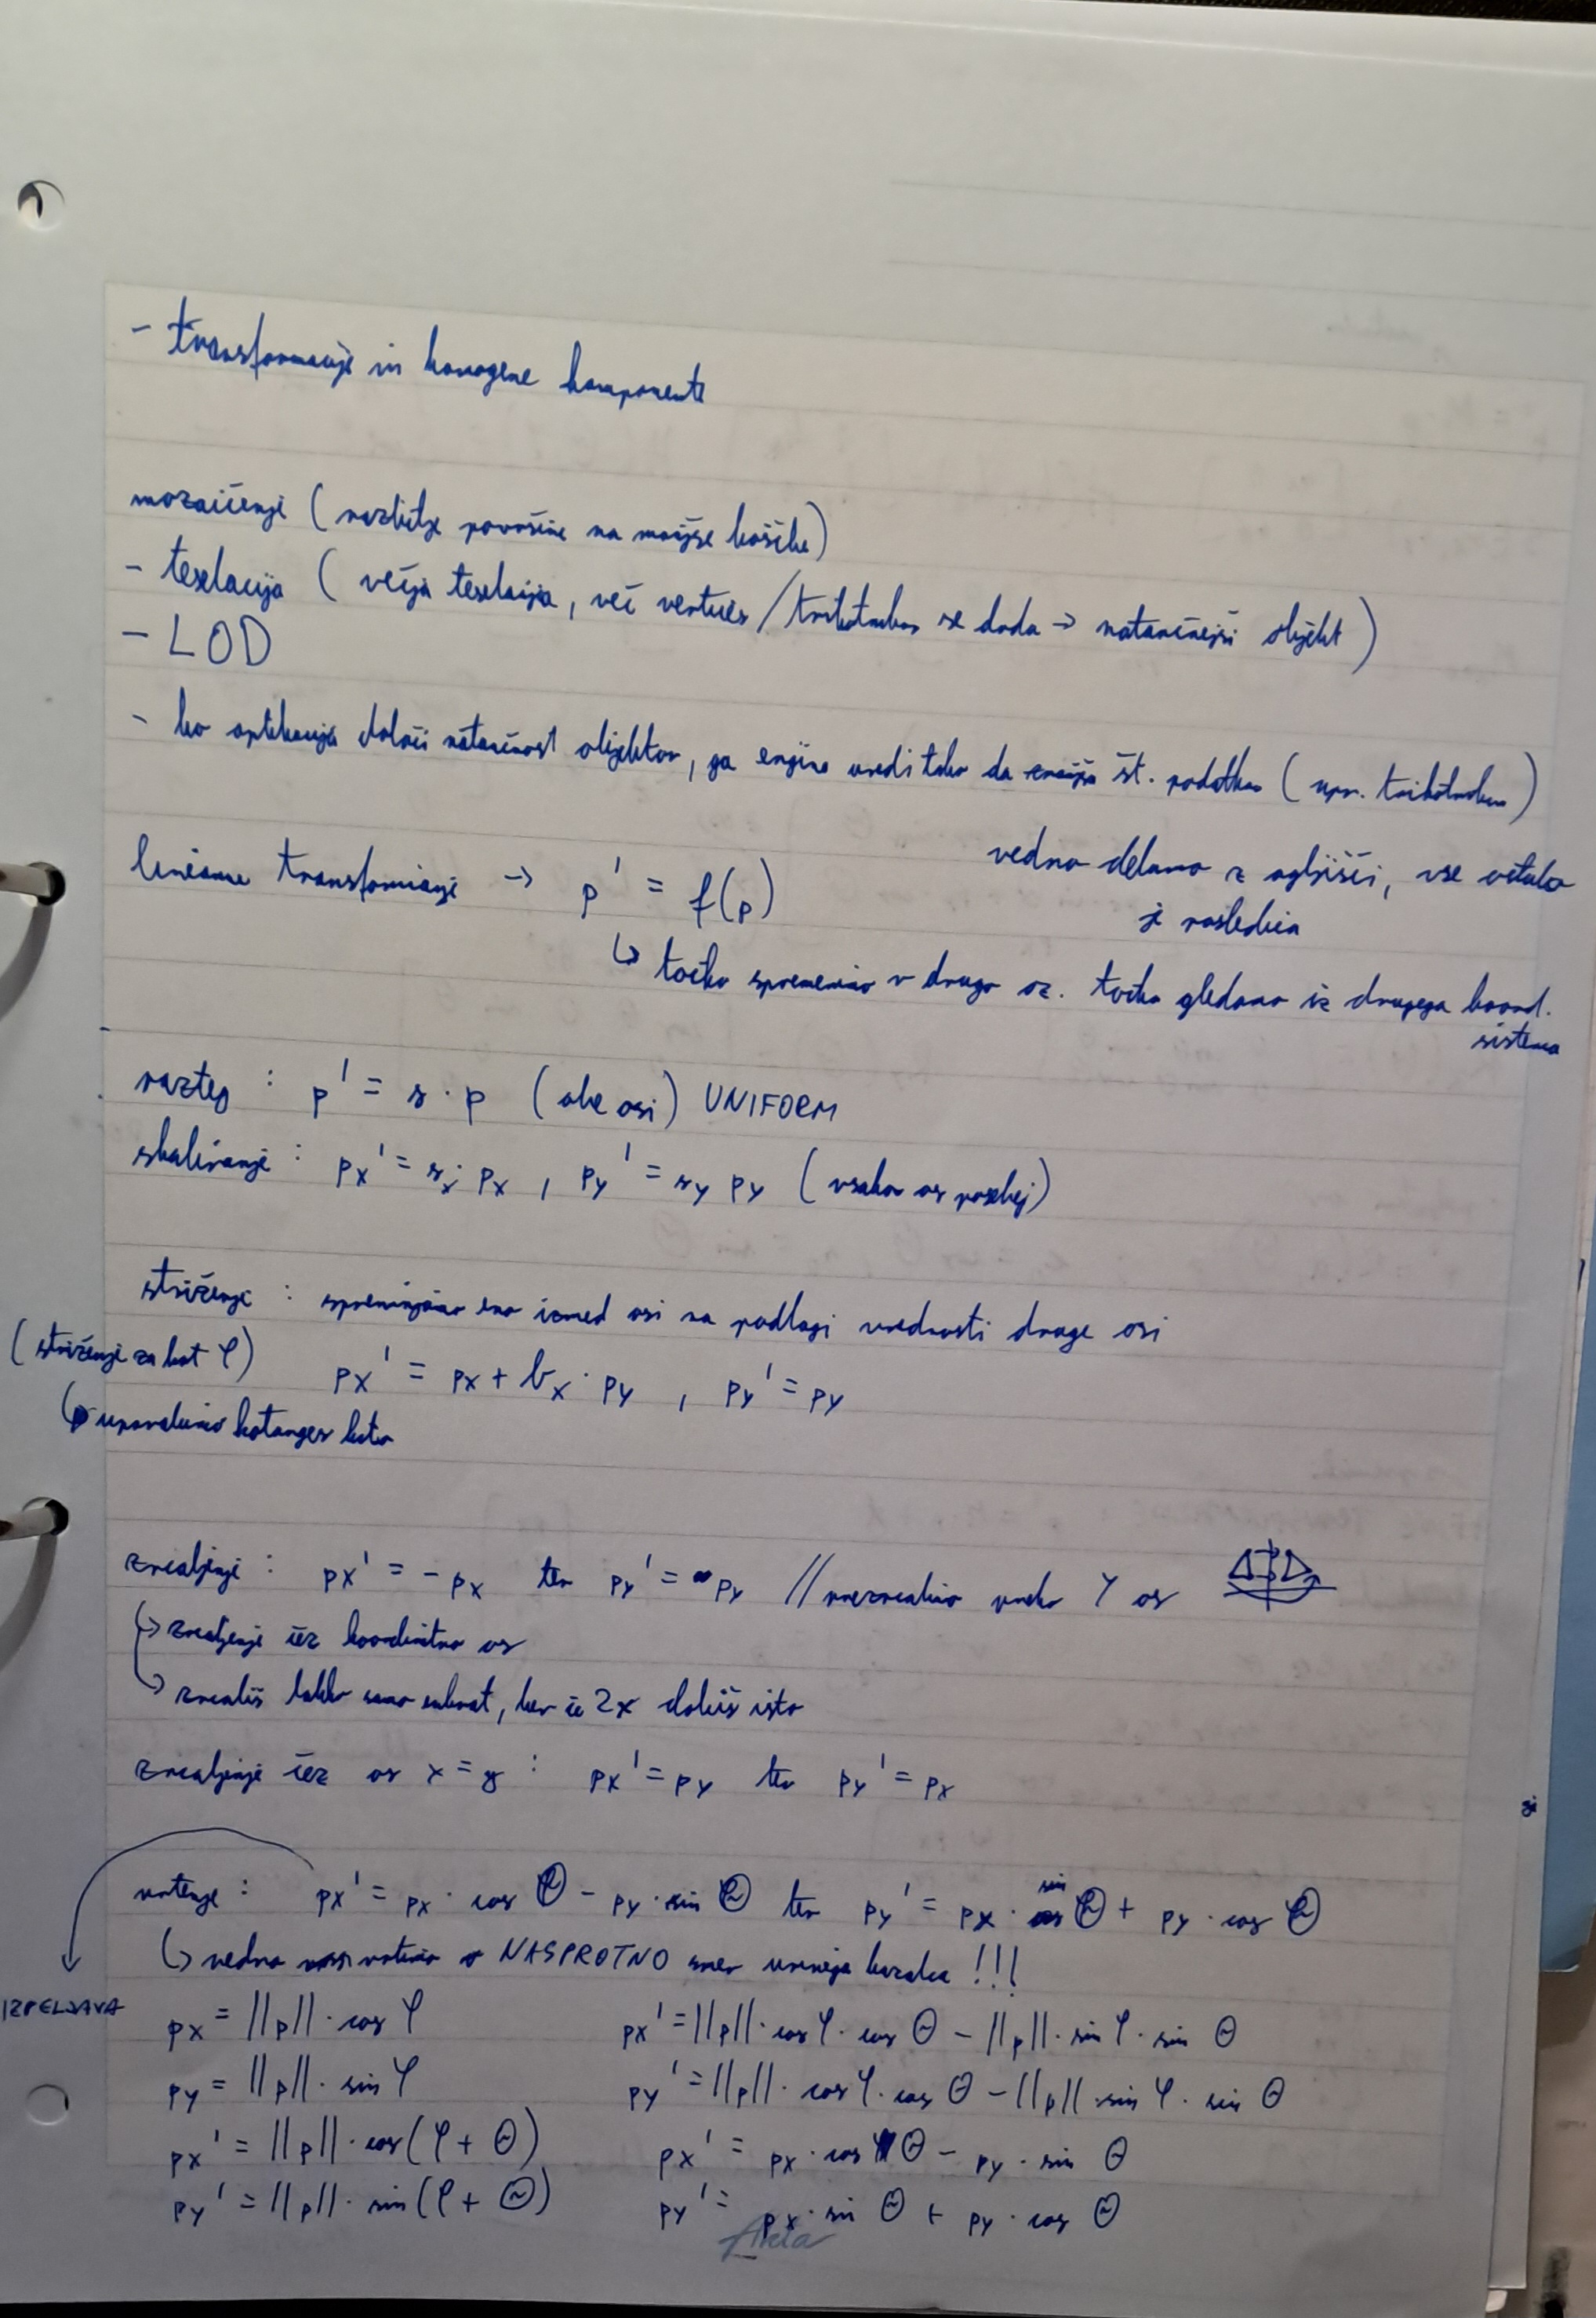 - transformacije in homogene komponente
mozaičenje (razbitje površine na manjše koščke)
- teselacija (večja teselacija, več vertices / trikotnikov se doda → natančnejši objekt)
- LOD
- ko aplikacija določi natančnost objektov, ga engine uredi tako da zmanjša št. podatkov (npr. trikotnikov)
linearne transformacije → p' = f(p)
vedno delamo z oglišči, vse ostalo
je posledica
↳ točko spremenimo v drugo oz. točko gledamo iz drugega koord.
sistema
razteg : p' = s · p (obe osi) UNIFORM
skaliranje : px' = sx · px , py' = sy py (vsako os posebej)
striženje : spreminjamo eno izmed osi na podlagi vrednosti druge osi
(striženje za kot φ)
px' = px + bx · py , py' = py
↳ uporabimo kotanges kota
zrcaljenje : px' = - px ter py' = py // prezrcalimo preko Y os
↳ zrcaljenje čez koordinatno os
↳ zrcališ lahko samo enkrat, ker če 2x dobiš isto
zrcaljenje čez os x = y : px' = py ter py' = px
vrtenje : px' = px · cos Θ - py · sin Θ ter py' = px · sin Θ + py · cos Θ
↳ vedno vrtimo v NASPROTNO smer urinega kazalca !!!
IZPELJAVA
px = ||p|| · cos φ
px' = ||p|| · cos φ · cos Θ - ||p|| · sin φ · sin Θ
py = ||p|| · sin φ
py' = ||p|| · cos φ · cos Θ - ||p|| · sin φ · sin Θ
px' = ||p|| · cos(φ + Θ)
px' = px · cos Θ - py · sin Θ
py' = ||p|| · sin(φ + Θ)
py' = px · sin Θ + py · cos Θ